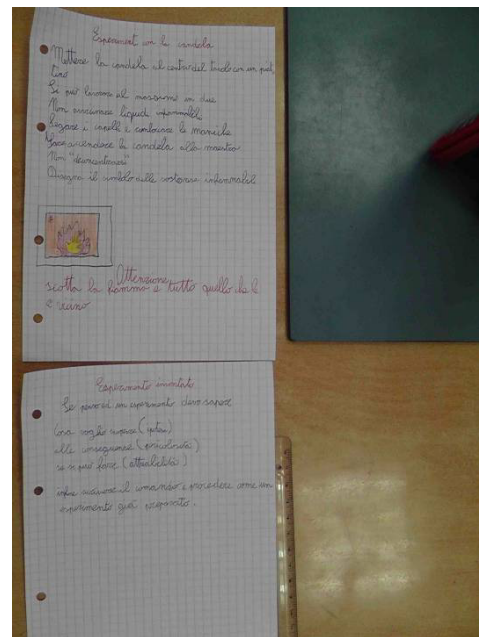 Esperimenti con la candela
Mettere la candela al centro del tavolo con un piat
tino
Si può lavorare al massimo in due
Non avvicinare liquidi infiammabili
Legare i capelli e arrotolare le maniche
Fare accendere la candela alla maestra
Non "deconcentrarsi"
Disegna il simbolo delle sostanze infiammabili
Attenzione
scotta la fiamma e tutto quello che le
è vicino
Esperimento inventato
Se penso ad un esperimento devo sapere
cosa voglio sapere (ipotesi)
alle conseguenze (pericolosità)
se si può fare (attuabilità)
infine scrivere il comando e procedere come un
esperimento già preparato.